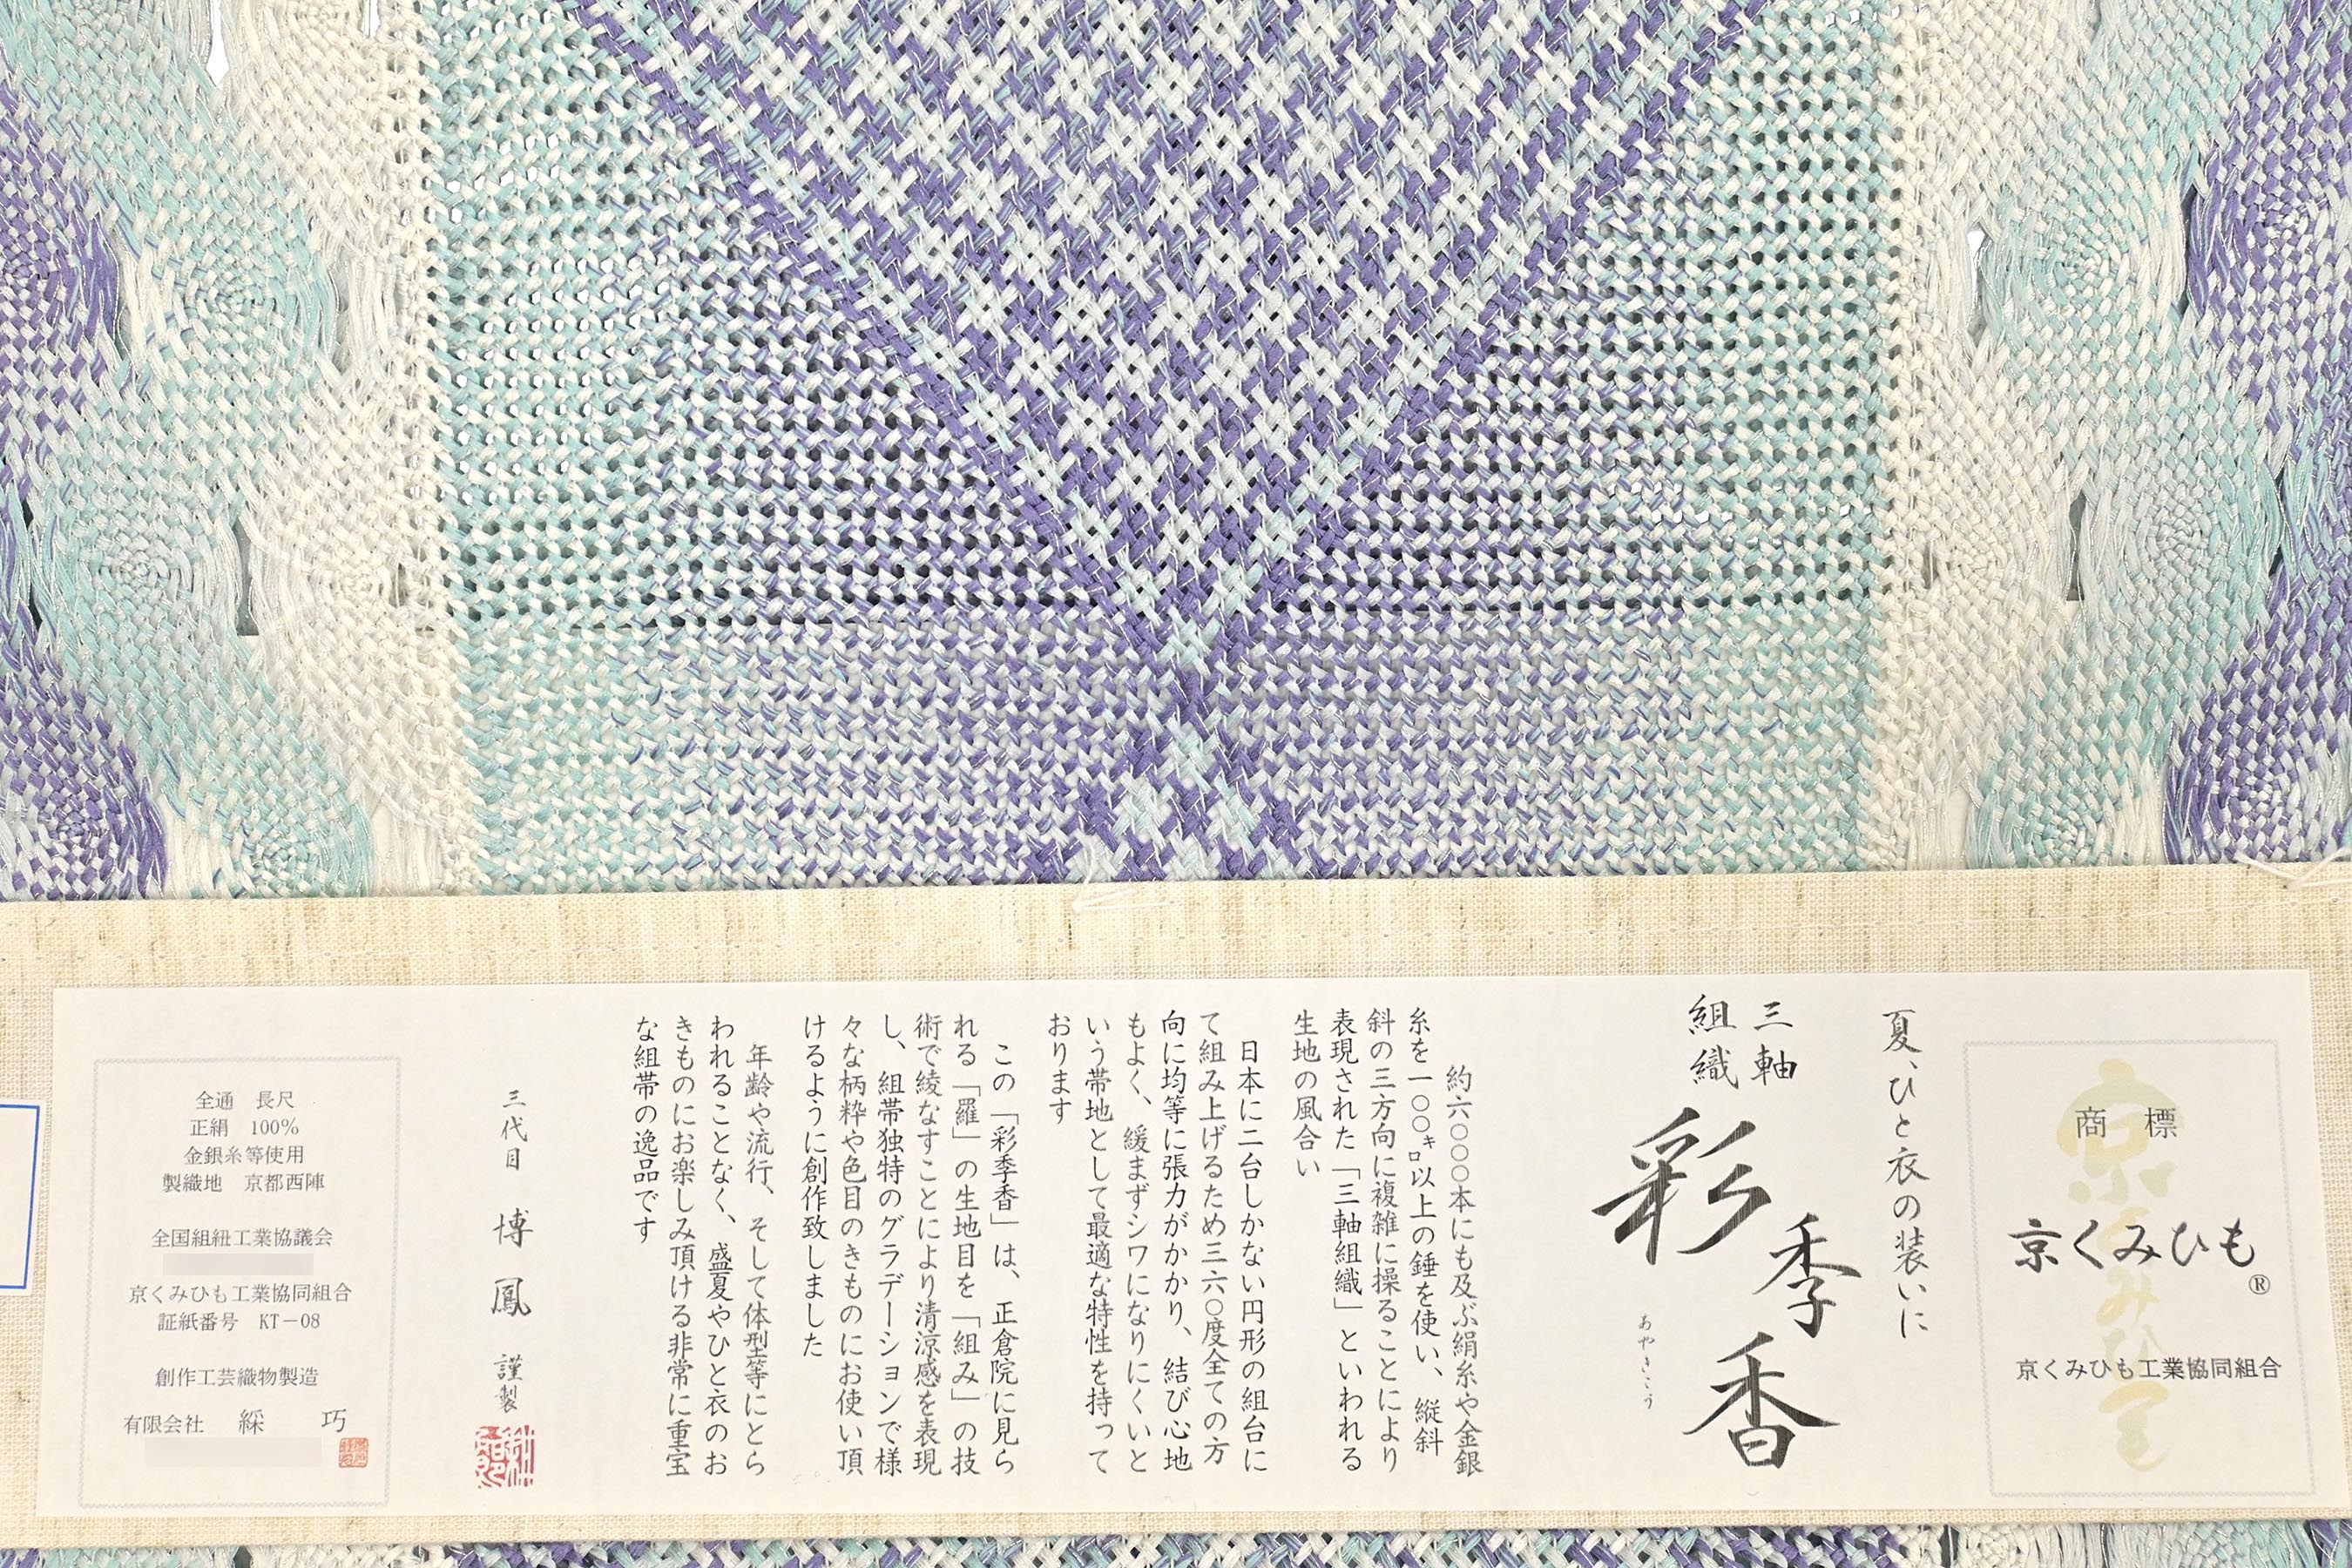 商標
京くみひも®
京くみひも工業協同組合
夏、ひと衣の装いに
三軸
組織
彩季香
あやきこう
約六〇〇〇本にも及ぶ絹糸や金銀
糸を一〇〇㌔以上の錘を使い、縦斜
斜の三方向に複雑に操ることにより
表現された「三軸組織」といわれる
生地の風合い
日本に二台しかない円形の組台に
て組み上げるため三六〇度全ての方
向に均等に張力がかかり、結び心地
もよく、緩まずシワになりにくいと
いう帯地として最適な特性を持って
おります
この「彩季香」は、正倉院に見ら
れる「羅」の生地目を「組み」の技
術で綾なすことにより清涼感を表現
し、組帯独特のグラデーションで様
々な柄粋や色目のきものにお使い頂
けるように創作致しました
年齢や流行、そして体型等にとら
われることなく、盛夏やひと衣のお
きものにお楽しみ頂ける非常に重宝
な組帯の逸品です
三代目 博鳳 謹製
全通 長尺
正絹 100%
金銀糸等使用
製織地 京都西陣
全国組紐工業協議会
京くみひも工業協同組合
証紙番号 KT－08
創作工芸織物製造
有限会社 綵巧